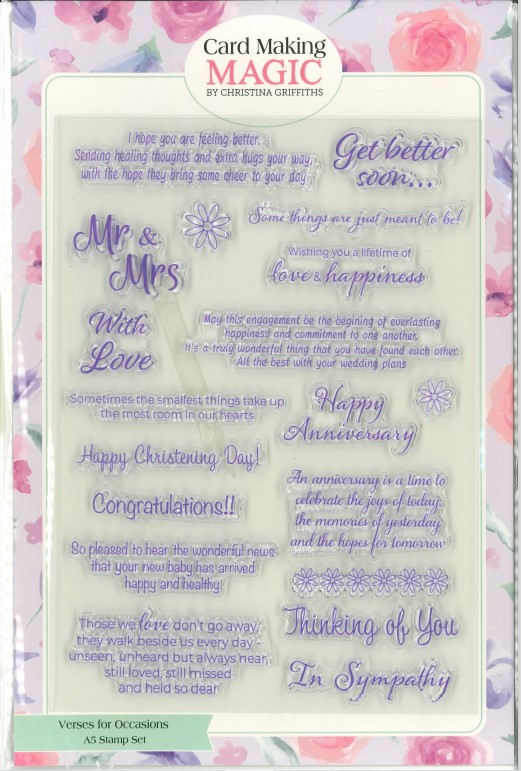 Card Making
MAGIC
BY CHRISTINA GRIFFITHS
I hope you are feeling better.
Sending healing thoughts and extra hugs your way,
with the hope they bring some cheer to your day
Get better
soon...
Mr &
Mrs
Some things are just meant to be!
Wishing you a lifetime of
love & happiness
With
Love
May this engagement be the begining of everlasting
happiness and commitment to one another.
It's a truly wonderful thing that you have found each other.
All the best with your wedding plans
Sometimes the smallest things take up
the most room in our hearts
Happy
Anniversary
Happy Christening Day!
Congratulations!!
An anniversary is a time to
celebrate the joys of today,
the memories of yesterday
and the hopes for tomorrow
So pleased to hear the wonderful news
that your new baby has arrived
happy and healthy!
Those we love don't go away,
they walk beside us every day -
unseen, unheard but always near,
still loved, still missed
and held so dear
Thinking of You
In Sympathy
Verses for Occasions
A5 Stamp Set